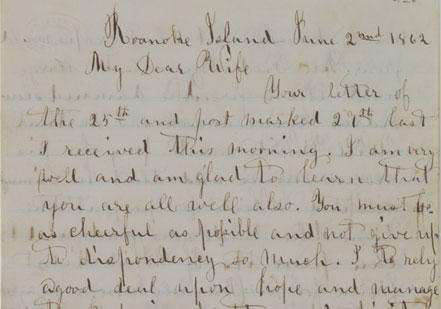 Roanoke Island June 2nd 1862
My Dear Wife
Your letter of
the 25th and post marked 29th last
I received this morning. I am very
well and am glad to learn that
you are all well also. You must be
as cheerful as possible and not give up
to dispondency so much. I to rely
a good deal upon hope and manage